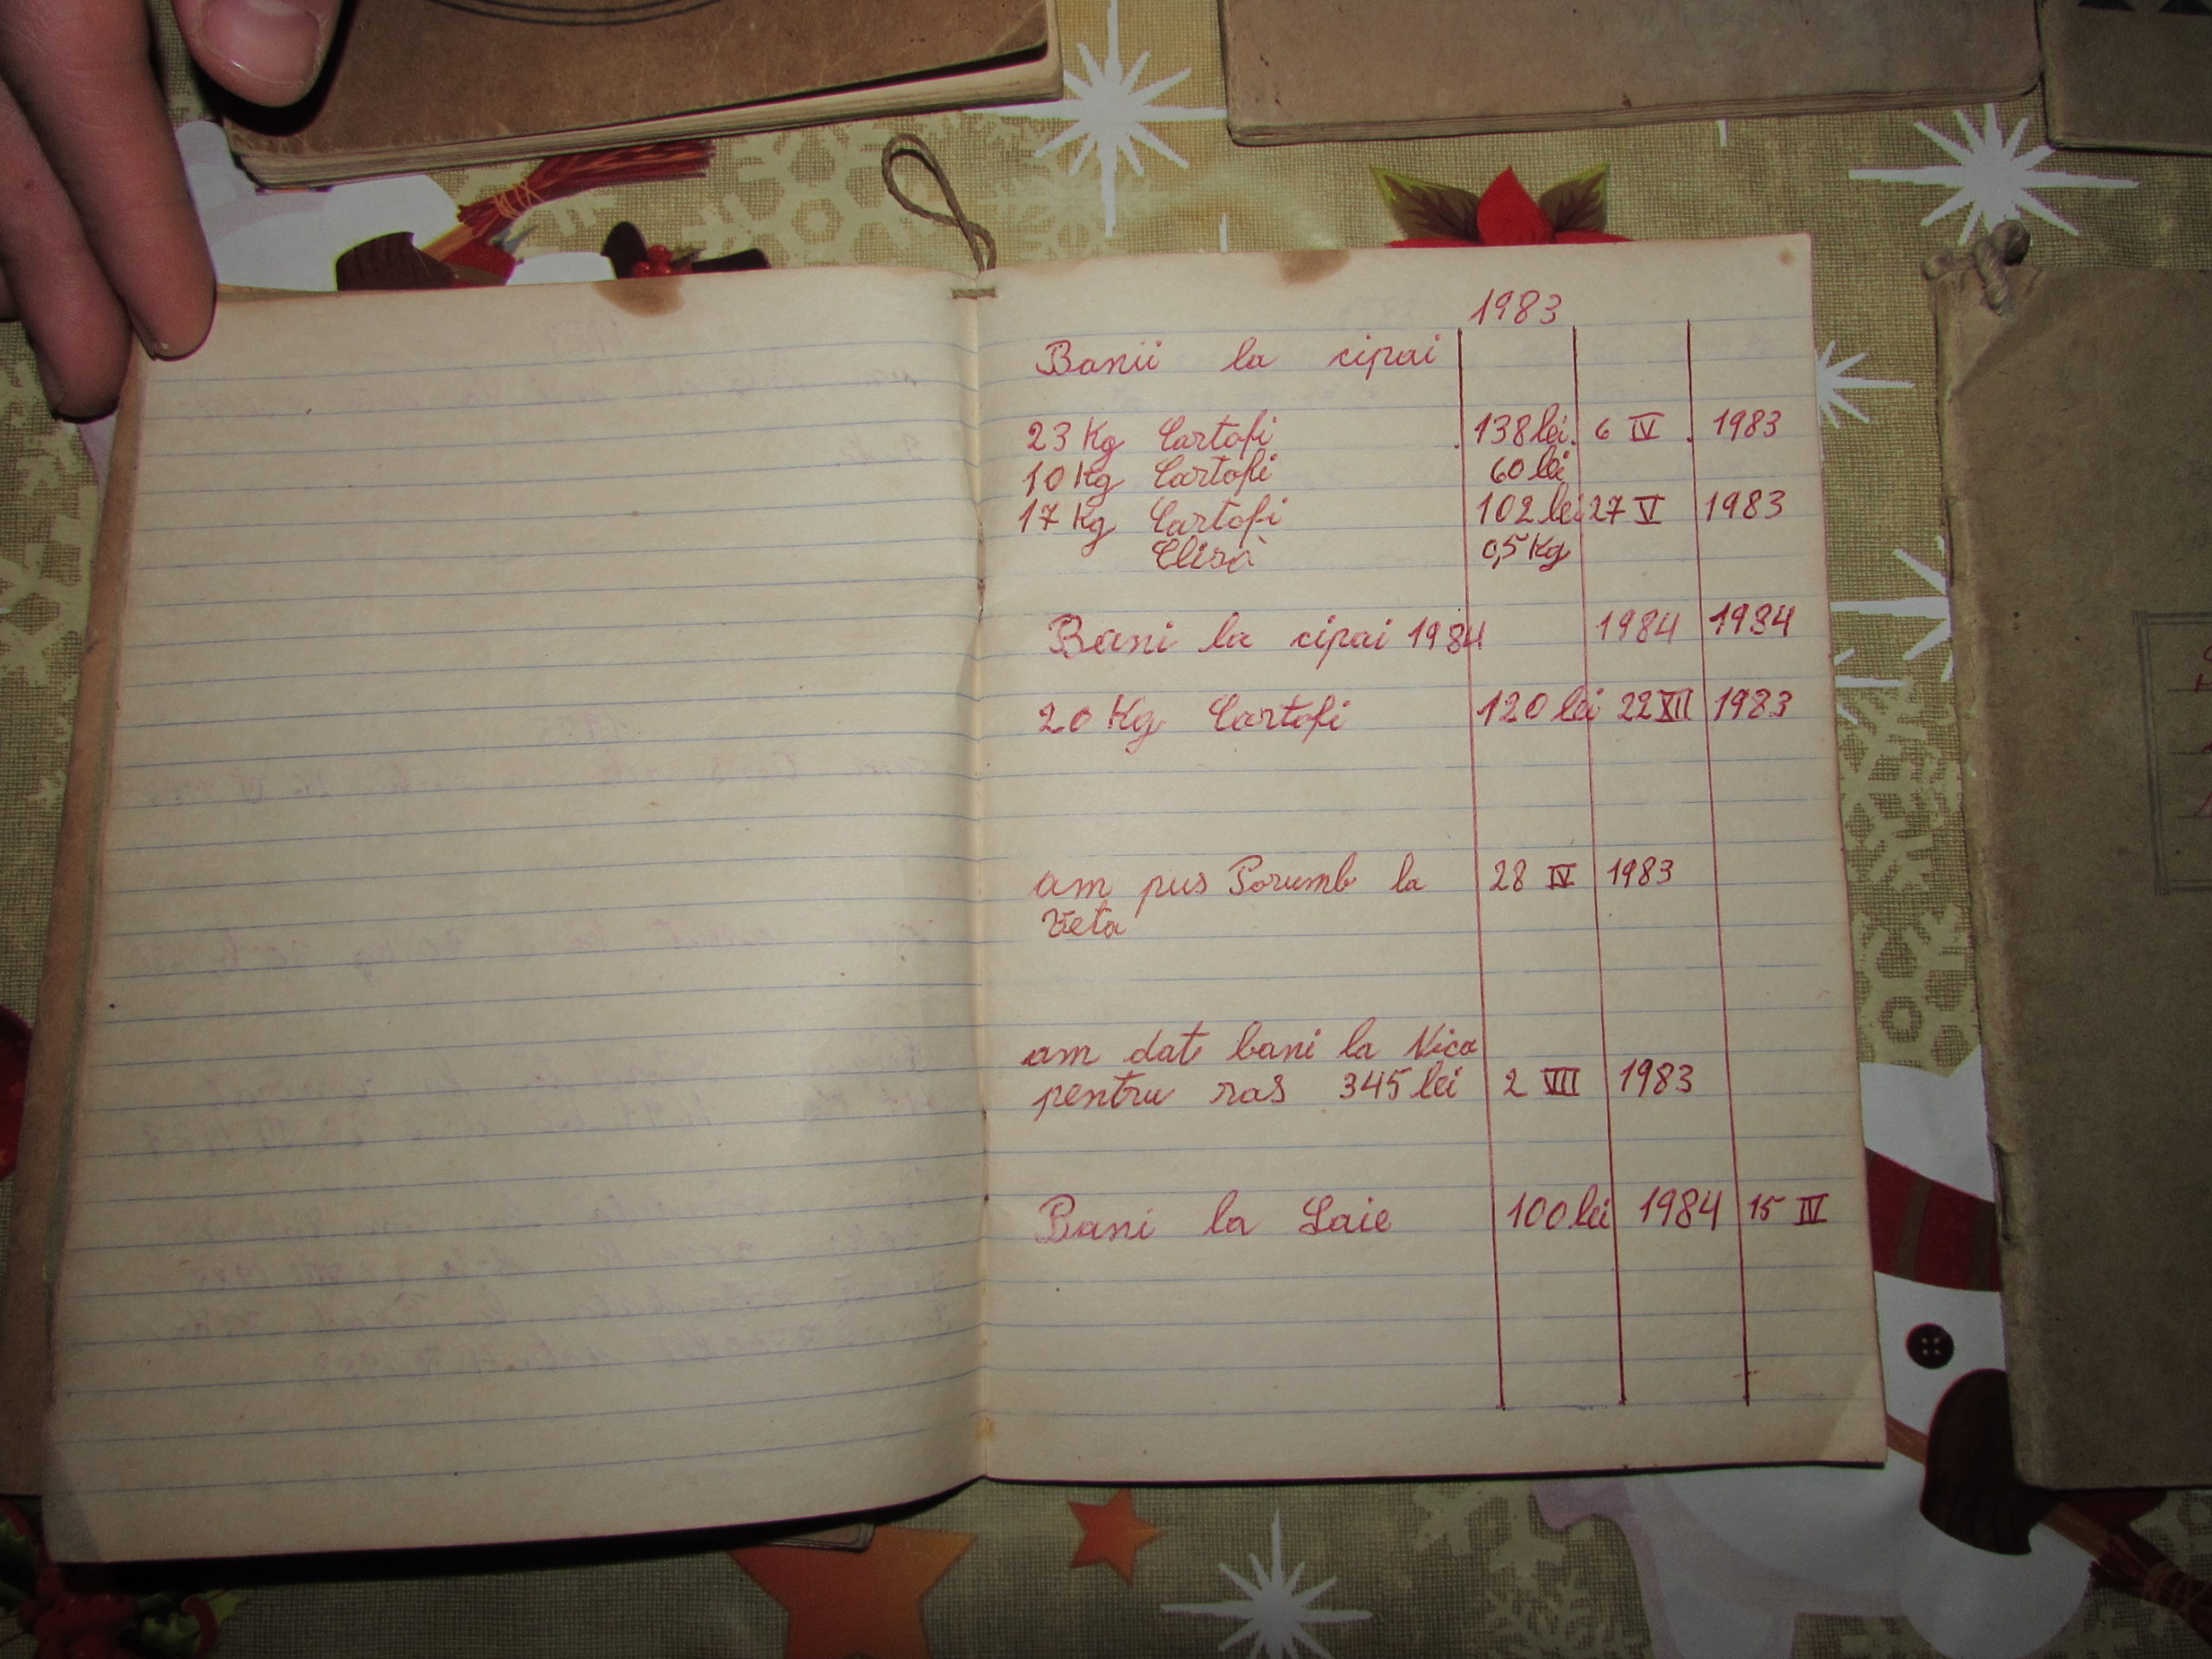 1983
Banii la cipai
23 Kg Cartofi 138 lei. 6 IV . 1983
10 Kg Cartofi 60 lei
17 Kg Cartofi 102 lei 27 V 1983
Clisă 0,5 Kg
Bani la cipai 1984 1984 1984
20 Kg Cartofi 120 lei 22 XII 1983
am pus Porumb la 28 IV 1983
Veta
am dat bani la Nica
pentru ras 345 lei 2 VIII 1983
Bani la Laie 100 lei 1984 15 IV